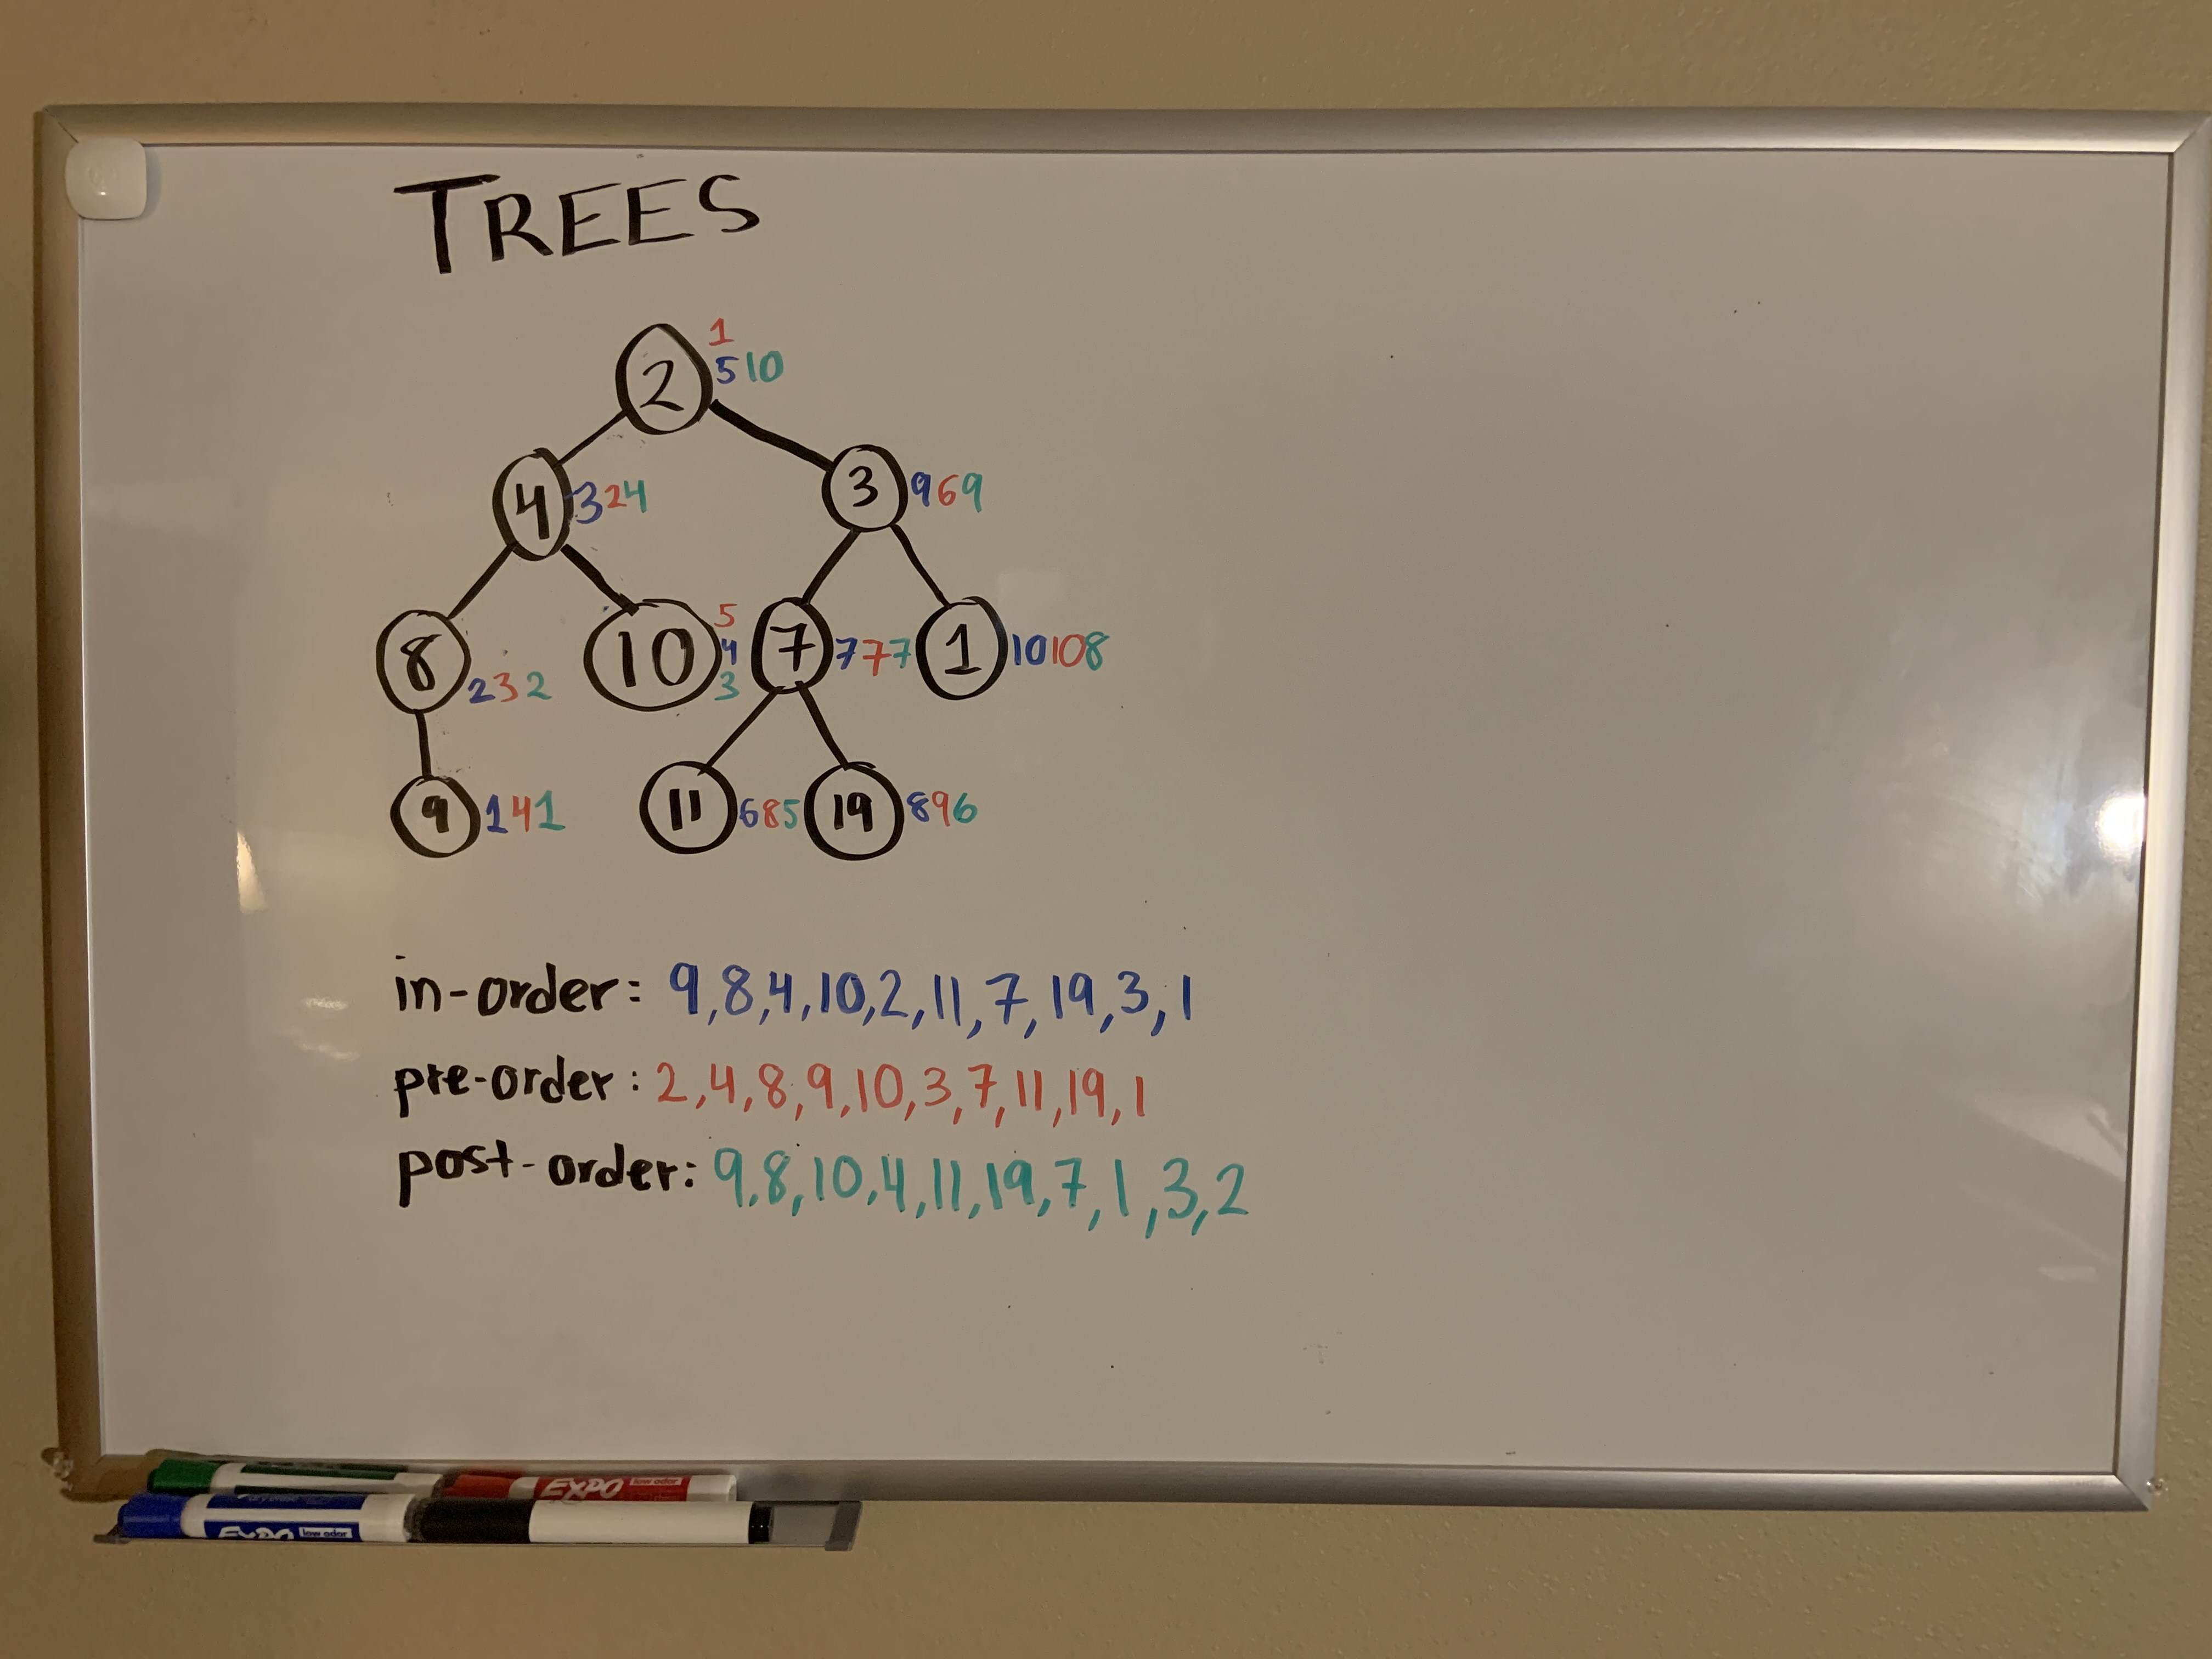 TREES
1
2 5 10
4 3 2 4 3 9 6 9
5
8 2 3 2 10 4 7 7 7 7 1 10 10 8
3
9 1 4 1 11 6 8 5 19 8 9 6
in-order: 9,8,4,10,2,11,7,19,3,1
pre-order: 2,4,8,9,10,3,7,11,19,1
post-order: 9,8,10,4,11,19,7,1,3,2
EXPO low odor
EXPO low odor